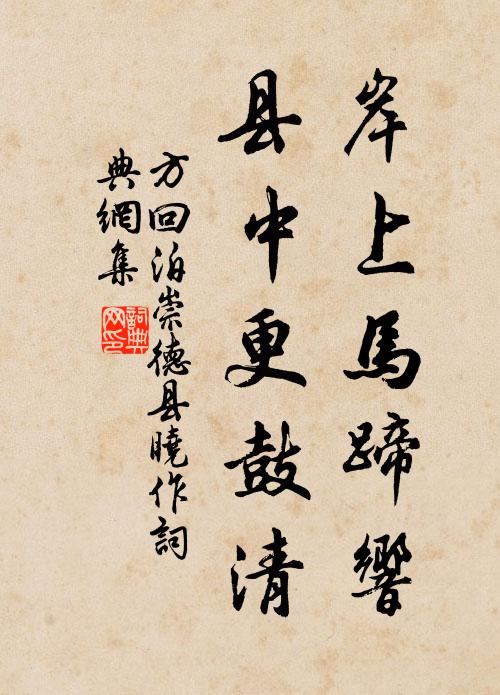 岸上马蹄響
县中更鼓清
方回泊崇德县曉作詞
典網集
詞典网印